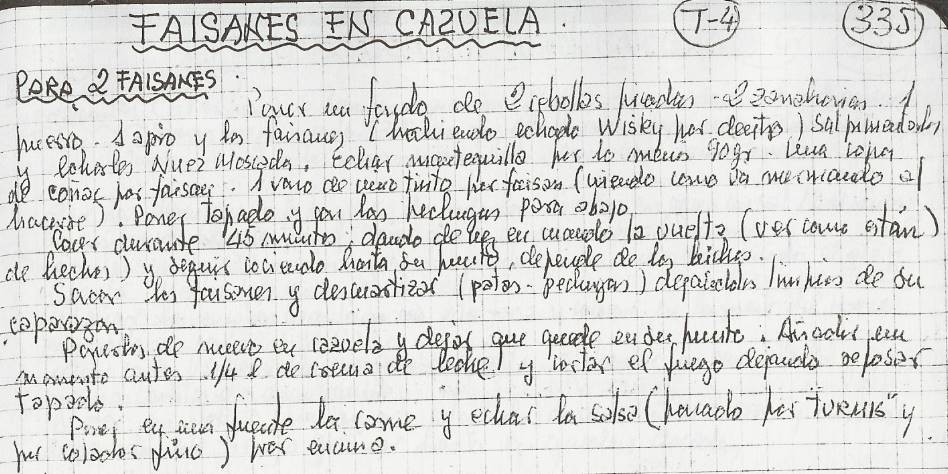 FAISANES EN CAZUELA. T-4 335
PARA 2 FAISANES
Poner un fondo de 2 cebollas picadas - 2 zanahorias. 1
puerro. 1 apio y los faisanes (habiendo echado Wisky por dentro) Salpimentarlos
y echarles Nuez Moscada. Echar mantequilla por lo menos 90 gr. Una copa
de coñac por faisan. 1 vaso de vino tinto por faisan (viendo como va mermando al
hacerse). Poner tapado y con las pechugas para abajo
Cocer durante 45 minutos; dando de vez en cuando la vuelta (ver como están
de hechos) y seguir cociendo hasta su punto, depende de los bichos.
Sacar los faisanes y descuartizar (patas - pechugas) dejandolos limpios de su
caparazon.
Ponerlos de nuevo en cazuela y dejar que quede en su punto. Añadir un
momento antes 1/4 l de crema de leche y cortar el fuego dejando reposar
tapado.
Poner en una fuente la carne y echar la salsa (pasado por "TURMIS" y
por colador fino) por encima.